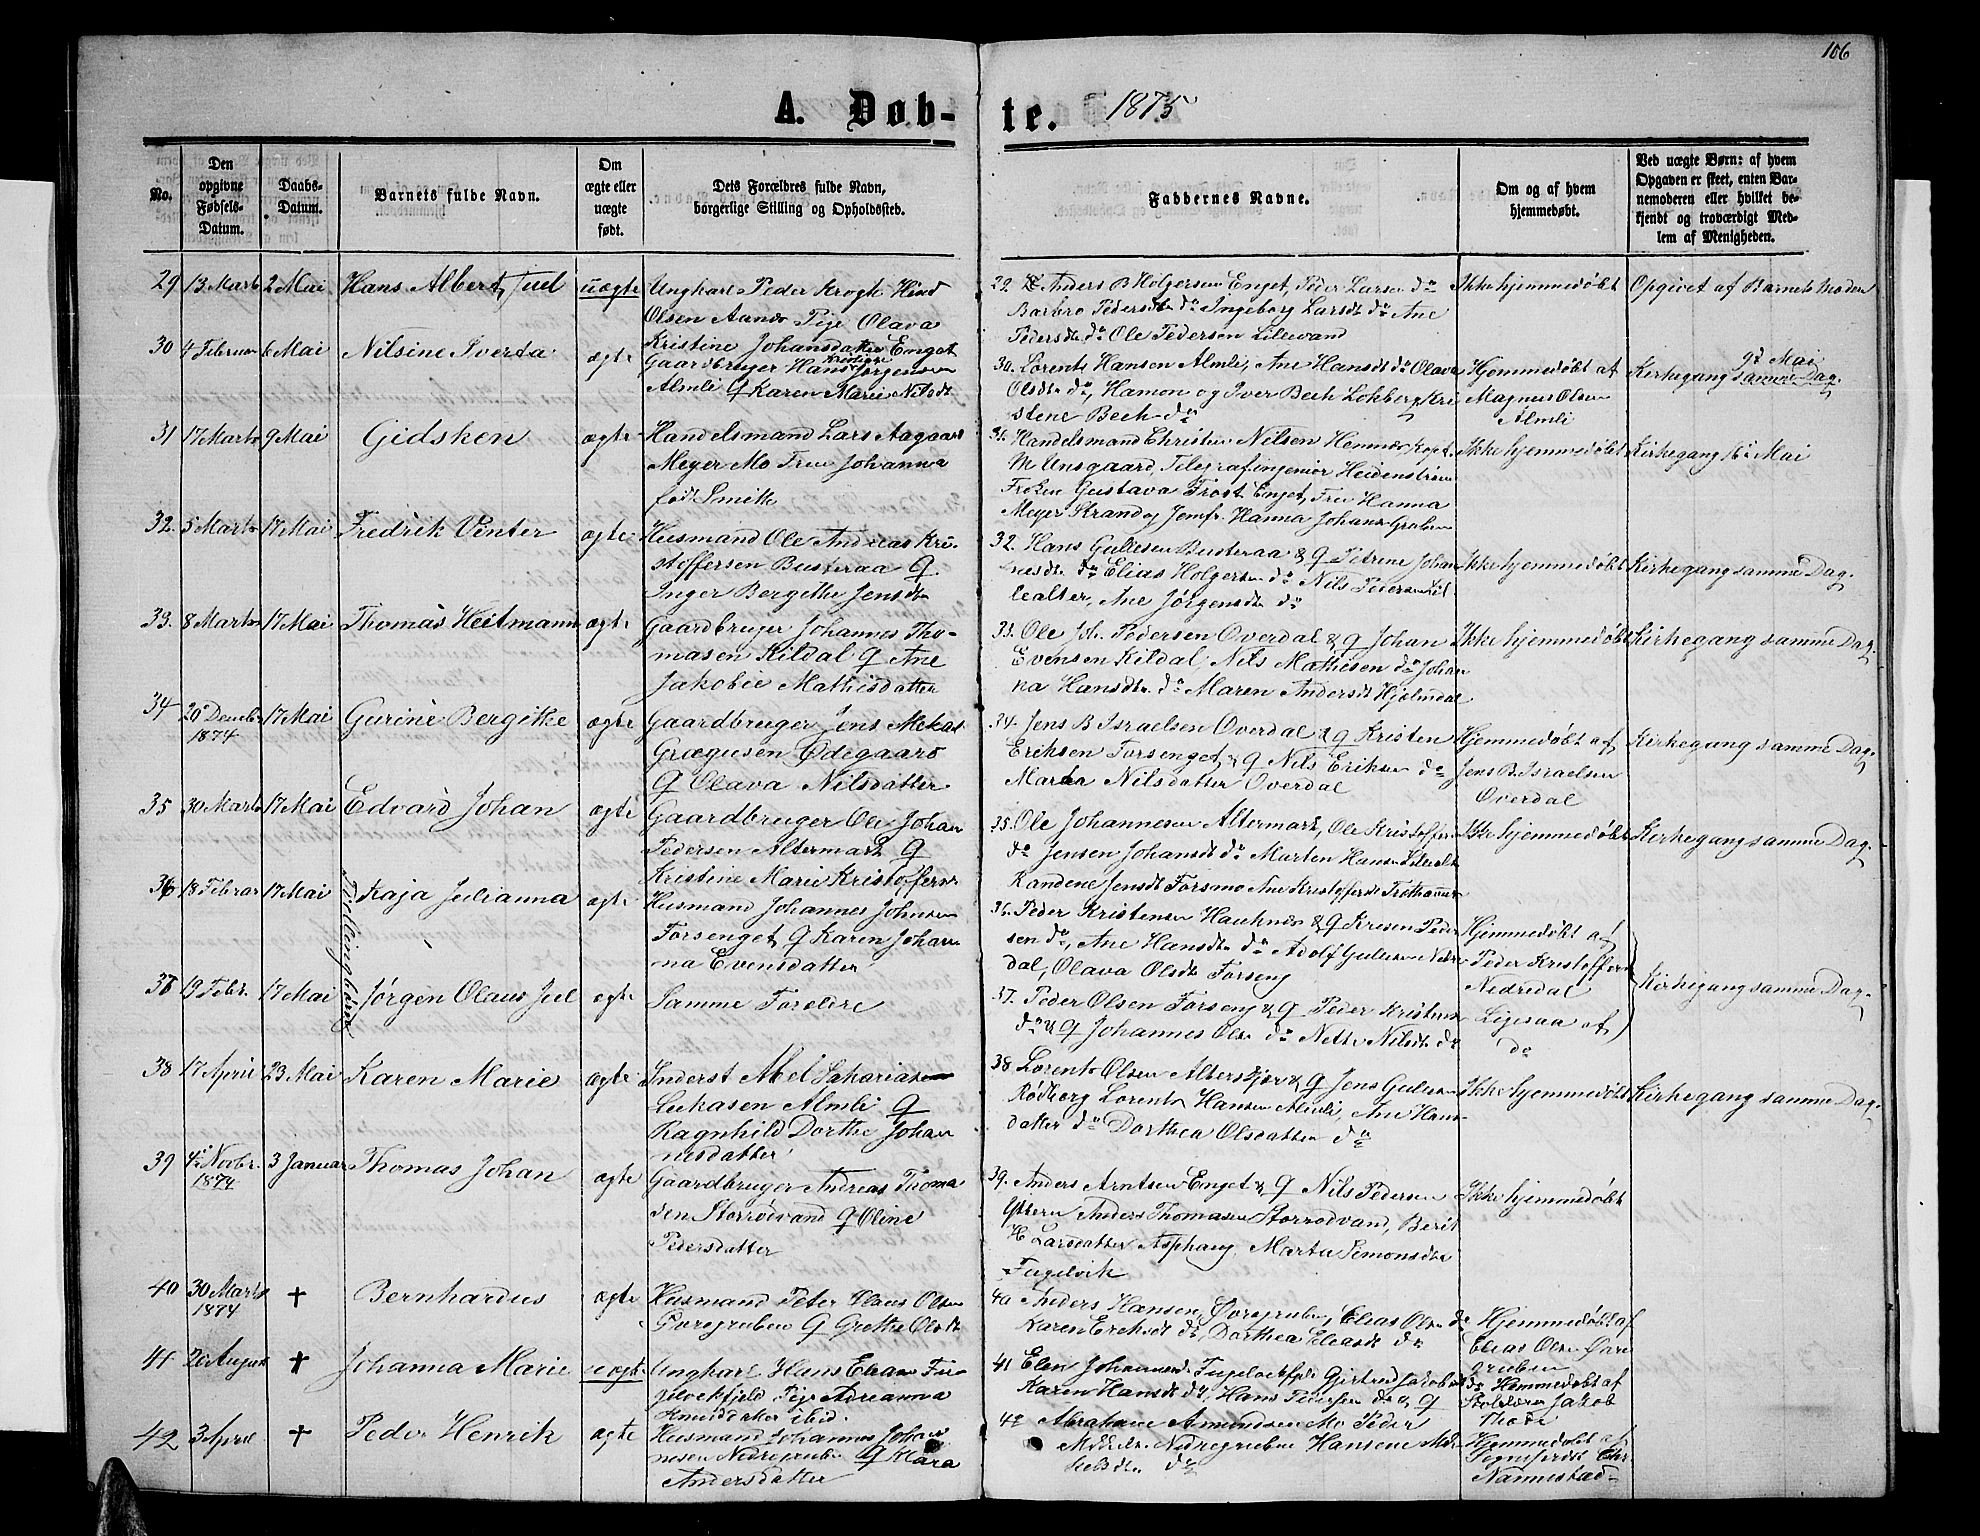 106
A. Døb-
te. 1875
No.
Den opgivne Fødsels-Datum.
Daabs-Datum.
Barnets fulde Navn.
Om ægte eller uægte født.
Dets Forældres fulde Navn, borgerlige Stilling og Opholdssted.
Faddernes Navne.
Om og af hvem hjemmedøbt.
Ved uægte Børn: af hvem Opgaven er skeet, enten Barnemoderen eller hvilket bekjendt og troværdigt Medlem af Menigheden.
29 13 Marts 2 Mai Hans Albert Juel uægte Ungkarl Peder Krogh Hind
Olsen Aanes Pige Olava
Kristine Johansdatter Enget
29. Anders B Holgersen Enget, Peder Larsen do
Barbro Pedersdt do Ingeborg Larsdt do Ane
Pedersdt do Ole Pedersen Lillevand
Ikke hjemmedøbt Opgivet af Barnets Moder
30 4 Februar 6 Mai Nilsine Iverta ægte Gaardbruger Hans Jørgensen
Almli & Karen Marie Nilsdt
30. Lorents Hansen Almli, Ane Hansdt do Olava
Olsdt do, Hamon og Iver Bech Lokberg Kri
stene Bech do
Hjemmedøbt af
Magnus Olsen
Almli
9de Mai
Kirkegang samme Dag.
31 17 Marts 9 Mai Gidsken ægte Handelsmand Lars Aagaard
Meyer Mo Frue Johanna
født Smith
31. Handelsmand Christian Nilsen Hemnes Kapt.
M Unsgaard, Telegrafingeniør Heidenstrøm
Frøken Gustava Frost Enget, Frue Hanna
Meyer Strand og Jomfr. Hanna Johans Gruben
Ikke hjemmedøbt Kirkegang 16 Mai
32. 5 Marts 17 Mai Fredrik Venter ægte Husmand Ole Andreas Kri-
stoffersen Busteraa &
Inger Bergithe Jensdt
32. Hans Guliesen Busteraa & Q Petrine Johan
nesdt do Elias Holgersen do Nils Pedersen Lil
lealter, Ane Jørgensdt do
Ikke hjemmedøbt Kirkegang samme Dag.
33. 8 Marts 17 Mai Thomas Heitmann ægte Gaardbruger Johannes Tho-
masen Kildal Q Ane
Jakobie Mathisdatter
33. Ole Joh. Pedersen Overdal & Q Johan
Evensen Kildal, Nils Mathisen do Johan
na Hansdt. do Maren Andersdt Hjelmedal
Ikke hjemmedøbt Kirkegang samme Dag.
34 20 Decmb. 1874 17 Mai Gurine Bergitke ægte Gaardbruger Jens Mekal
Grægusen Ødegaard
Q Olava Nilsdatter
34. Jens B Israelsen Overdal & Q Kristen
Eriksen Forsenget & Q Nils Eriksen do
Marta Nilsdatter Overdal
Hjemmedøbt af
Jens B. Israelsen
Overdal
Kirkegang samme Dag.
35 30 Marts 17 Mai Edvard Johan ægte Gaardbruger Ole Johan
Pedersen Altermark Q
Kristine Marie Kristoffersd.
35. Ole Johannesen Altermark, Ole Kristoffersen
do Jensen Johansdt do Marten Hansen Lillealt
Randene Jensdt Forsmo Ane Kristoffersdt
Ikke hjemmedøbt Kirkegang samme Dag.
36 18 Februar 17 Mai Kaja Julianna ægte Husmand Johannes Johnsen
Forsenget Q Karen Johan
na Evensdatter
Tvillingbørn
36. Peder Kristensen Hauknes & Q Kresen Peder
sen do, Ane Hansdt do Adolf Guliesen Nedre
dal, Olava Olsdt Forseng
Hjemmedøbt af
Peder Kristoffersen
Nedredal
Kirkegang samme Dag.
36 19 Febr. 17 Mai Jørgen Olaus Juel ægte Samme Foreldre
37. Peder Olsen Forseng & Q Peder Kristens
do & Q Johannes Olsen do Nette Nilsdt do
Ligesaa af
do
38 17 April 23 Mai Karen Marie ægte Inderst Abel Sakariasen
Lukasen Almli Q
Ragnhild Dorthe Johan
nesdatter
38. Lorents Olsen Alterskjær & Q Jens Guliesen
Rødberg Lorents Hansen Almli, Ane Hans-
datter do Dorthea Olsdatter do
Ikke hjemmedøbt Kirkegang samme Dag.
39 4 Novbr. 1874 3 Januar Thomas Johan ægte Gaardbruger Andreas Thoma
sen Storrodvand Q Oline
Pedersdatter
39. Anders Arntsen Enget & Q Nils Pedersen
Ytteren Anders Thomasen Storrodvand, Berit
H Larsdatter Asphaug, Marta Simonsdt
Fugelvik
Ikke hjemmedøbt
40 30 Marts 1874 † Bernhardus ægte Husmand Peter Klaus Olsen
Øvregruben Q Grethe Olsdt
40 Anders Hansen, Øvregruben, Elias Olsen do
Karen Eriksdt do, Dorthea Eliasdt do
Hjemmedøbt af
Elias Olsen Øvre
gruben
41 26 August † Johanna Marie uægte Ungkarl Hans Elias
Pige Adrianna
Knudsdatter ibid.
41 Elen Johannesdt Girtrud Jakobsd
Karen Hansdt do, Hans Pedersen do & Q
do Hjemmedøbt af
Skolelærer Jakob
42 3 April † Peder Henrik ægte Husmand Johannes Johan
nesen Nedregrube Q Klara
Andersdatter
42 Abraham Amundsen Mo Peder
Mikkelsen Nedregruben Hansene Mik-
kelsdt. do
Hjemmedøbt af
Nannestad